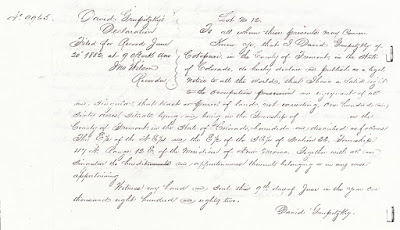 No 8965.
David Grupitzky's
Declaration
Filed for Record June
20th 1882 at 9 o'clock A.M.
Jno Wilson
Recorder
Lot No 12.
To all whom these presents may Concern
Know ye, that I David Grupitzky of
Cotopaxi in the County of Fremont in the State
of Colorado, do hereby declare and publish as a legal
Notice to all the World, that I have a valid right
to the occupation possession and enjoyment of all
and singular that tract or parcel of land, not exceeding One hundred and
sixty acres situate lying and being in the Township of in the
County of Fremont in the State of Colorado, bounded and described as follows
The E/2 of the and the E/2 of the of Section 22, Township
47 N. Range 12 E. of the Meridian of New Mexico. Together with all and
singular the hereditaments and appurtenances thereto belonging or in any wise
appertaining
Witness my hand and Seal this 9th day of June in the year One
thousand eight hundred and eighty two.
David Grupitzky.